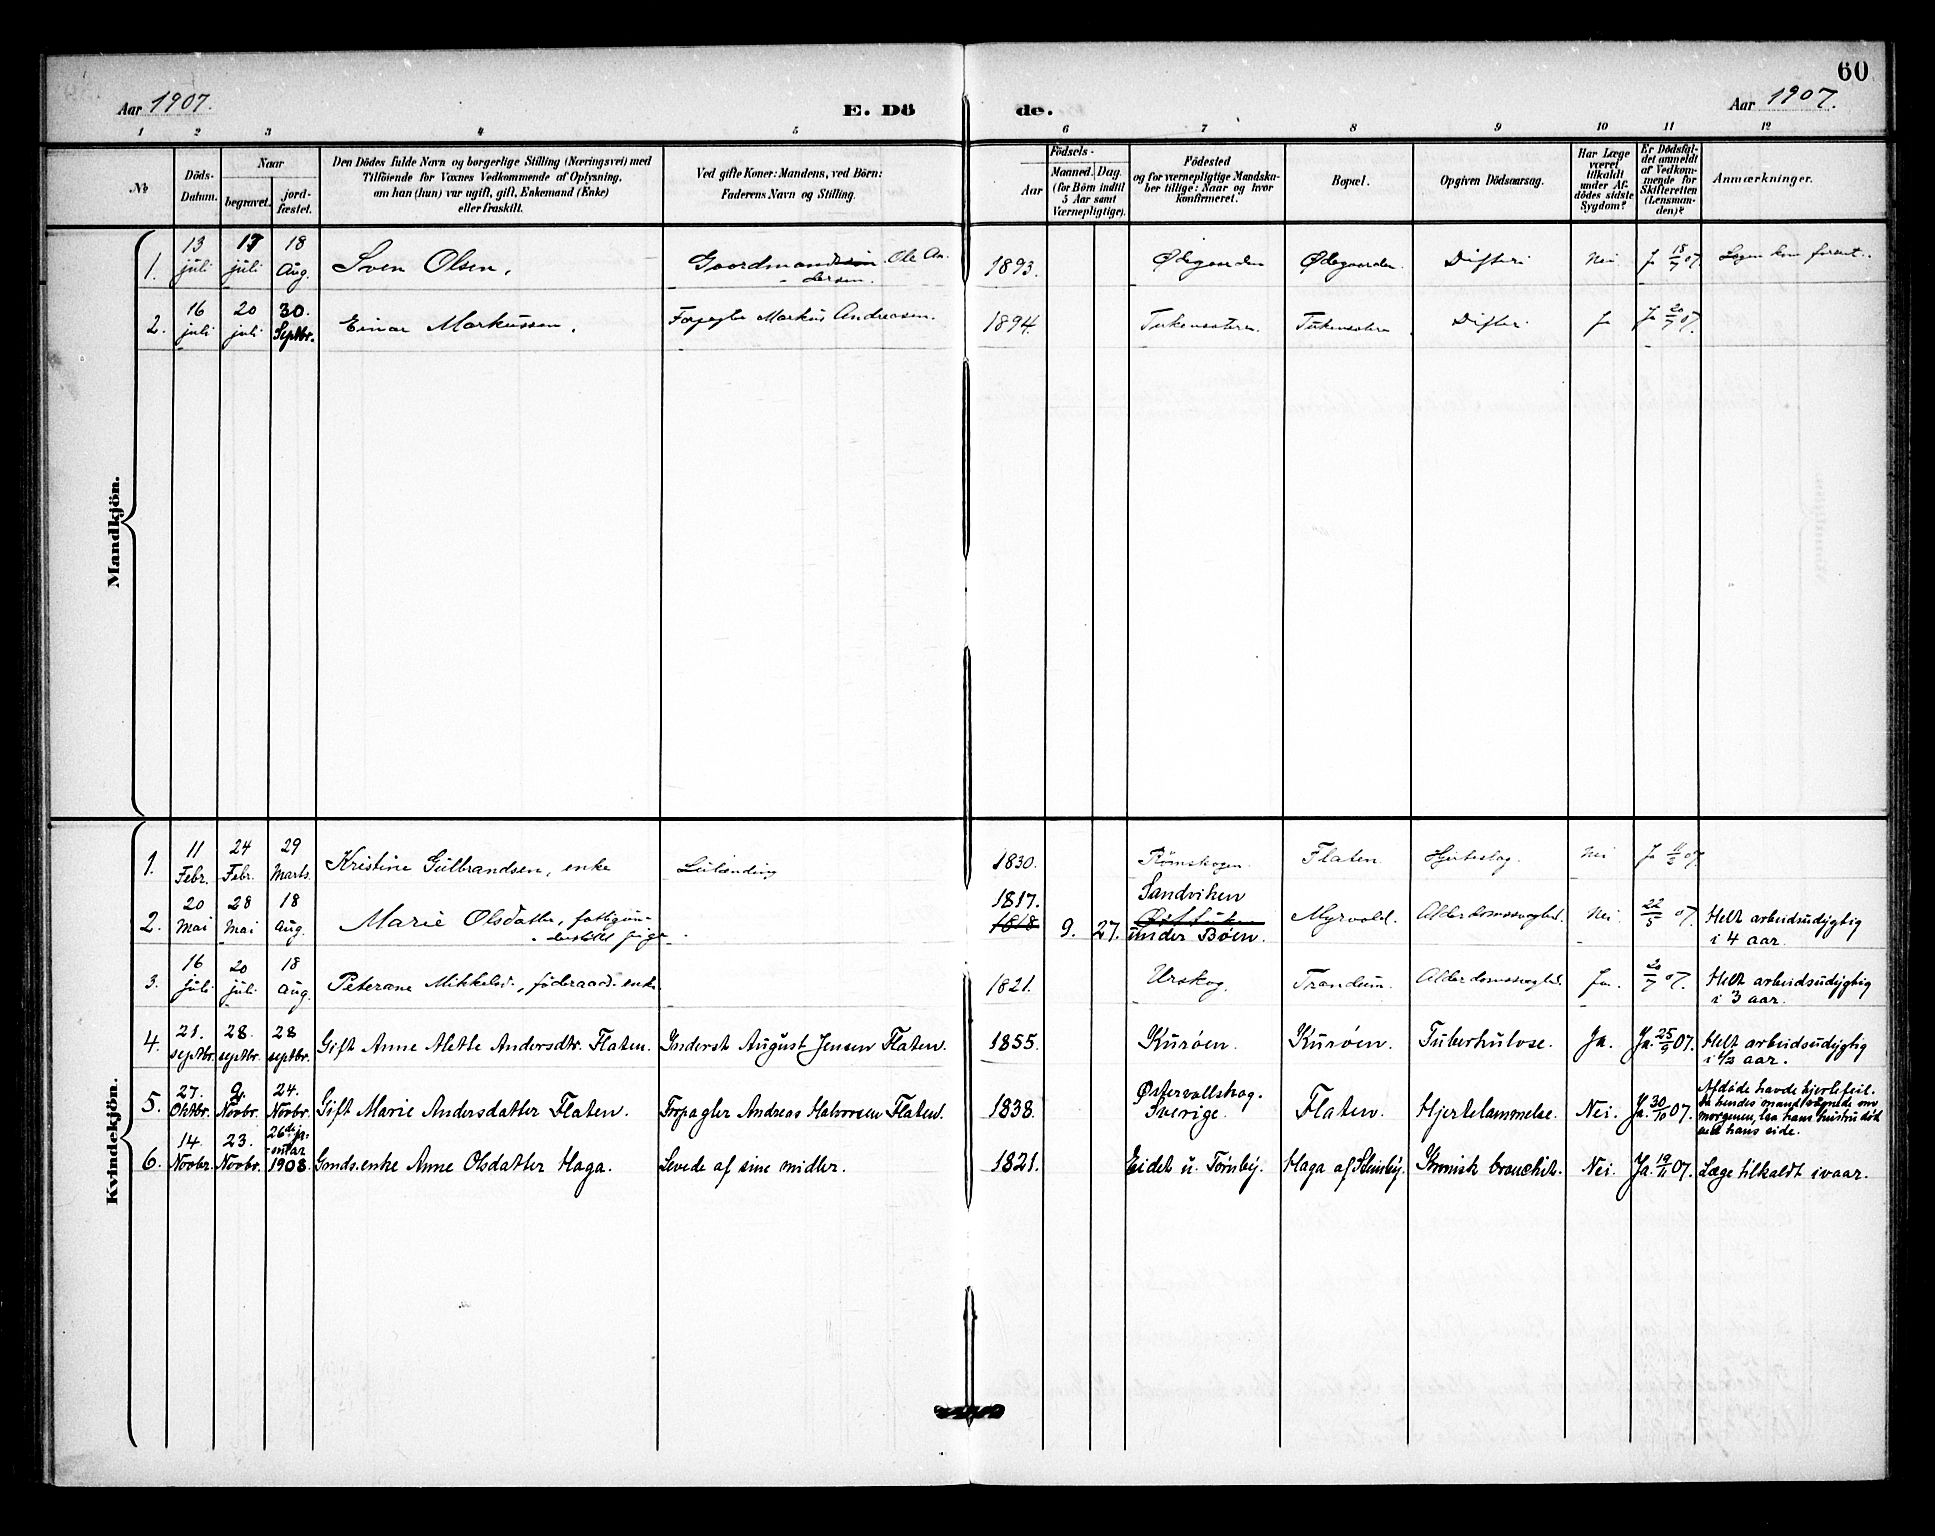 60
Aar 1907. E. Dö de. Aar 1907.
1 2 3 4 5 6 7 8 9 10 11 12
No
Döds-Datum.
Naar
begravet.
jord-fæstet.
Den Dödes fulde Navn og borgerlige Stilling (Næringsvei) med
Tilföiende for Voxnes Vedkommende af Oplysning,
om han (hun) var ugift, gift, Enkemand (Enke)
eller fraskilt.
Ved gifte Koner: Mandens, ved Börn:
Faderens Navn og Stilling.
Födsels-
Aar
Maaned. Dag.
(for Börn indtil
5 Aar samt
Værnepligtige).
Födested
og for værnepligtige Mandska-
ber tillige: Naar og hvor
konfirmeret.
Bopæl.
Opgiven Dödsaarsag.
Har Læge
været
tilkaldt
under Af-
dödes sidste
Sygdom?
Er Dödsfal-
det anmeldt
af Vedkom-
mende for
Skifteretten
(Lensman-
den)?
Anmærkninger.
Mandkjön.
1. 13 juli 17 juli 18 Aug. Sven Olsen, Ole An-dersen. 1893. Ødegaarden Ødegaarden. Difteri Nei Ja 18/7 07.
2. 16 juli 20 juli 30. Septbr. Einar Markussen. Forpagter Markus Andreasen. 1894. Difteri Ja Ja 20/7 07.
Kvindekjön.
1. 11 Febr. 24 Febr. 29 Marts. Kristine Gulbrandsen, enke 1830. Rømskogen Flaten Hjerteslag. Nei Ja 07.
2. 20 Mai 28 Mai 18 Aug. Marie Olsdatter, pige 1817. 1818 9. 27. Sandviken
under Bøen. Myrvold. Alderdomssvaghed. Nei 22/5 07. Helt arbeidsudygtig
i 4 aar.
3. 16 juli 20 juli 18 Aug. Peterane Mikkelsd., føderaads.enke 1821. Urskog. Trandum. Alderdomssvaghed. Ja. 20/7 07. Helt arbeidsudygtig
i 3 aar.
4. 21. septbr. 28. septbr. 28 septbr. Gift Anne Alette Andersdtr. Flaten. Inderst August Jensen Flaten. 1855. Kurøen. Kurøen. Tuberkulose. Ja. Ja. 25/9 07. Helt arbeidsudygtig
i 1/2 aar.
5. 27. Oktbr. 9. Novbr. 24. Novbr. Gift Marie Andersdatter Flaten. Forpagter Andreas Halvorsen Flaten. 1838. Østervallskog.
Sverige. Flaten. Hjertelammelse. Nei. Ja. 30/10 07. Afdøde havde hjertefeil.
Da hendes mand vaagnede om
morgenen, laa hans hustru død
ved hans side.
6. 14. Novbr. 23. Novbr. 26de ja-nuar 1908. Gmds.enke Anne Olsdatter Haga. Levede af sine midler. 1821. Eidet u. Tørnby. Haga af Stinsby. Kronisk bronchit. Nei. Ja. 19/11 07. Læge tilkaldt ivaar.